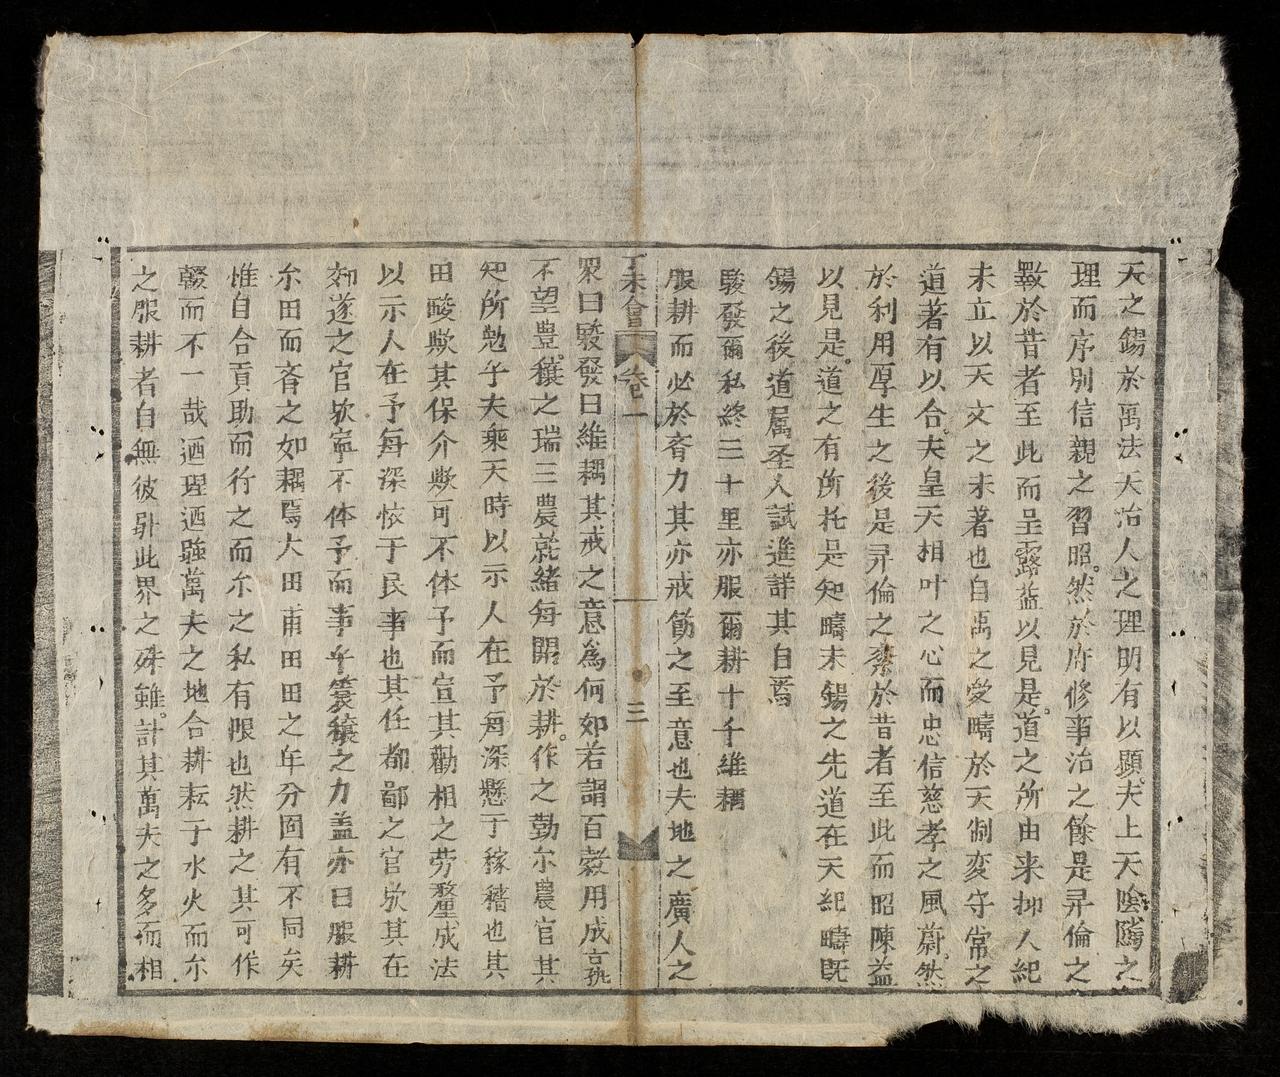 天之錫於萬法天治人之理明有以顕夫上天陰隲之
理而序別信親之習昭然於府修事治之餘是彛倫之
斁於昔者至此而呈露益以見是道之所由来抑人紀
未立以天文之未著也自禹之受疇於天制変守常之
道著有以合夫皇天相叶之心而忠信慈孝之風蔚然
於利用厚生之後是彛倫之紊於昔者至此而昭陳益
以見是道之有所托是知疇未錫之先道在天紀疇既
錫之後道属圣人試進詳其自焉
駿發爾私終三十里亦服爾耕十千維耦
服耕而必於斉力其亦戒飭之至意也夫地之廣人之
丁未會 卷一 三
眾曰駿發曰維耦其戒之意為何如若謂百榖用成
不望豊穰之瑞三農就緒每開於耕作之勤尔農官其
知所勉乎夫乘天時以示人在予每深懸于稼穡也其
田畯歟其保介歟可不体予而宣其勸相之劳釐成法
以示人在予每深恔于民事也其任都鄙之官欤其在
郊遂之官欤寧不体予而事乎蓑穰之力盖亦曰服耕
尔田而斉之如耦焉大田甫田田之年分固有不同矣
惟自合貢助而行之而尔之私有限也然耕之其可作
輟而不一哉迺理迺疆萬夫之地合耕耘于水火而尔
之服耕者自無彼此界之殊雖計其萬夫之多而相